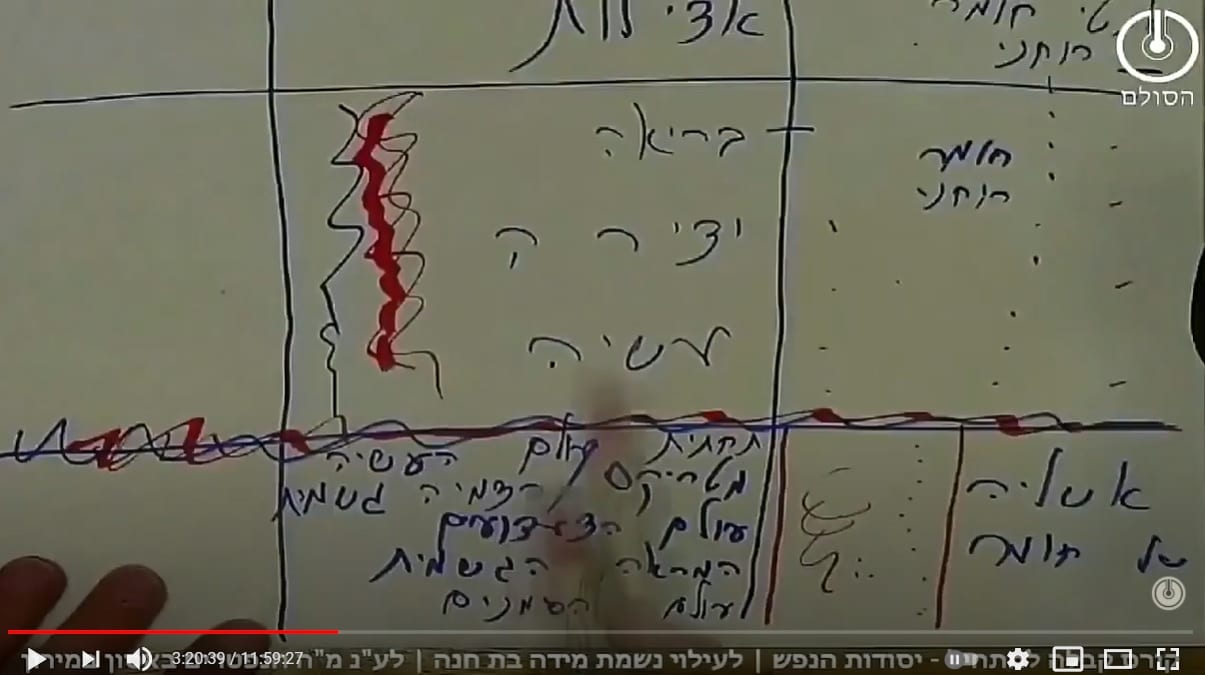 אצילות
טי חומר
רוחני
הסולם
בריאה
חומר
רוחני
יצירה
עשיה
תחתית עולם העשיה
מטריקס הדמיה גשמית
עולם הצעצועים
המראה הגשמית
עולם הסמנים
אשליה
של חומר
3:20:39 / 11:59:27
קורס קבלה - יסודות הנפש | לעילוי נשמת מידה בת חנה | לע"נ מ"ר